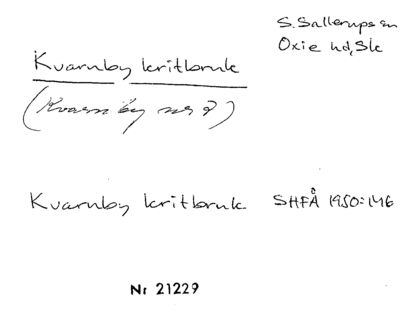 S. Sallerups sn
Oxie hd, Sk
Kvarnby kritbruk
(Kvarnby nr 8)
Kvarnby kritbruk SHFÅ 1950:146
Nr 21229